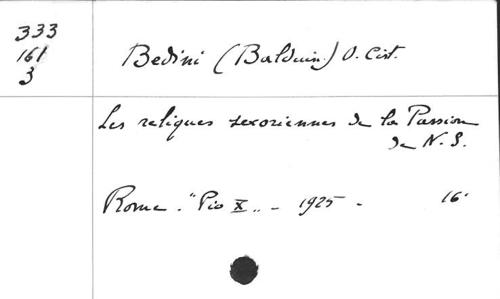 333
161
3
Bedini (Balduin.) O. Cist.
Les reliques sexoriennes de la Passion
de N. S.
Rome. "Pio X„ - 1925 - 16°